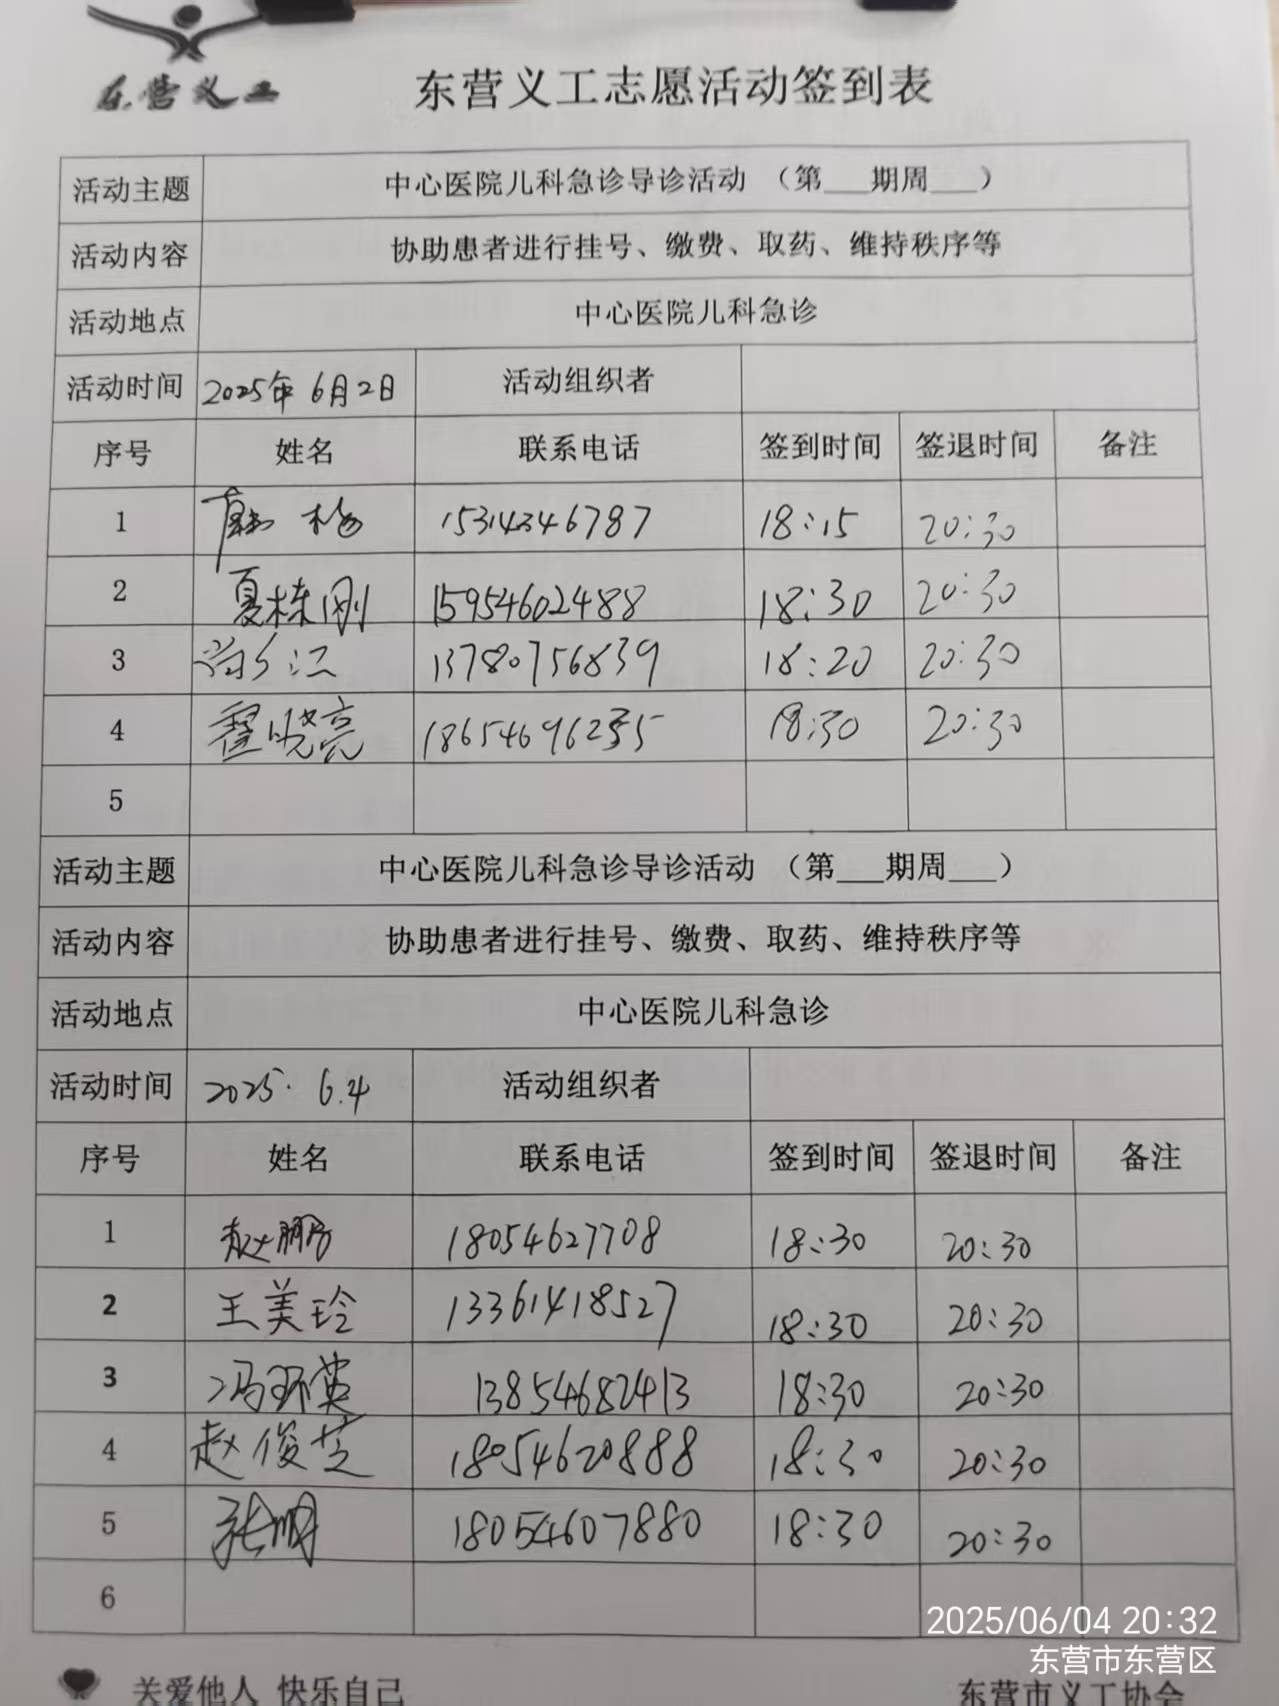 东营义工
东营义工志愿活动签到表
活动主题 中心医院儿科急诊导诊活动 （第___期周___）
活动内容 协助患者进行挂号、缴费、取药、维持秩序等
活动地点 中心医院儿科急诊
活动时间 2025年6月2日 活动组织者
序号 姓名 联系电话 签到时间 签退时间 备注
1 梅 15314346787 18:15 20:30
2 夏栋刚 15954602488 18:30 20:30
3 江 13780756839 18:20 20:30
4 翟晓亮 18:30 20:30
5
活动主题 中心医院儿科急诊导诊活动 （第___期周___）
活动内容 协助患者进行挂号、缴费、取药、维持秩序等
活动地点 中心医院儿科急诊
活动时间 2025.6.4 活动组织者
序号 姓名 联系电话 签到时间 签退时间 备注
1 赵鹏 18054627708 18:30 20:30
2 王美玲 13361418527 18:30 20:30
3 冯环英 13854682413 18:30 20:30
4 赵俊芝 18054620888 18:30 20:30
5 张明 18054607880 18:30 20:30
6
2025/06/04 20:32
东营市东营区
关爱他人 快乐自己
东营市义工协会